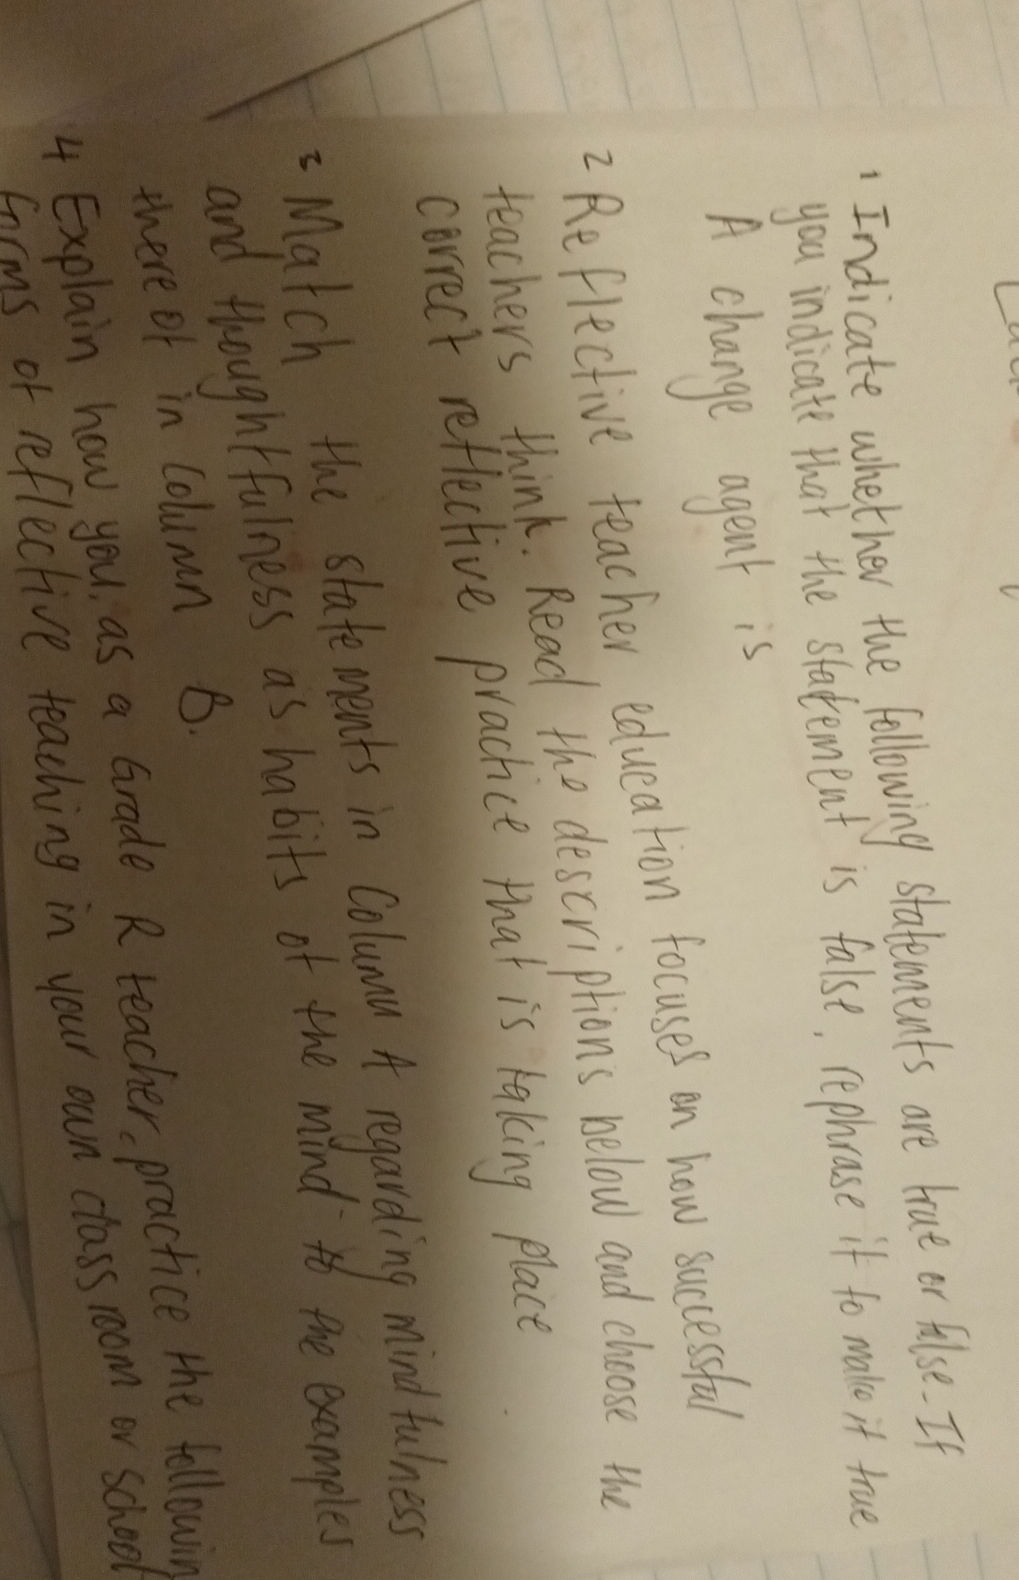 1 Indicate whether the following statements are true or false. If
you indicate that the statement is false, rephrase it to make it true
A change agent is
2 Reflective teacher education focuses on how successful
teachers think. Read the descriptions below and choose the
correct reflective practice that is taking place
3 Match the statements in Column A regarding mindfulness
and thoughtfulness as habits of the mind to the examples
there of in column B.
4 Explain how you, as a Grade R teacher, practice the followin
forms of reflective teaching in your own class room or school